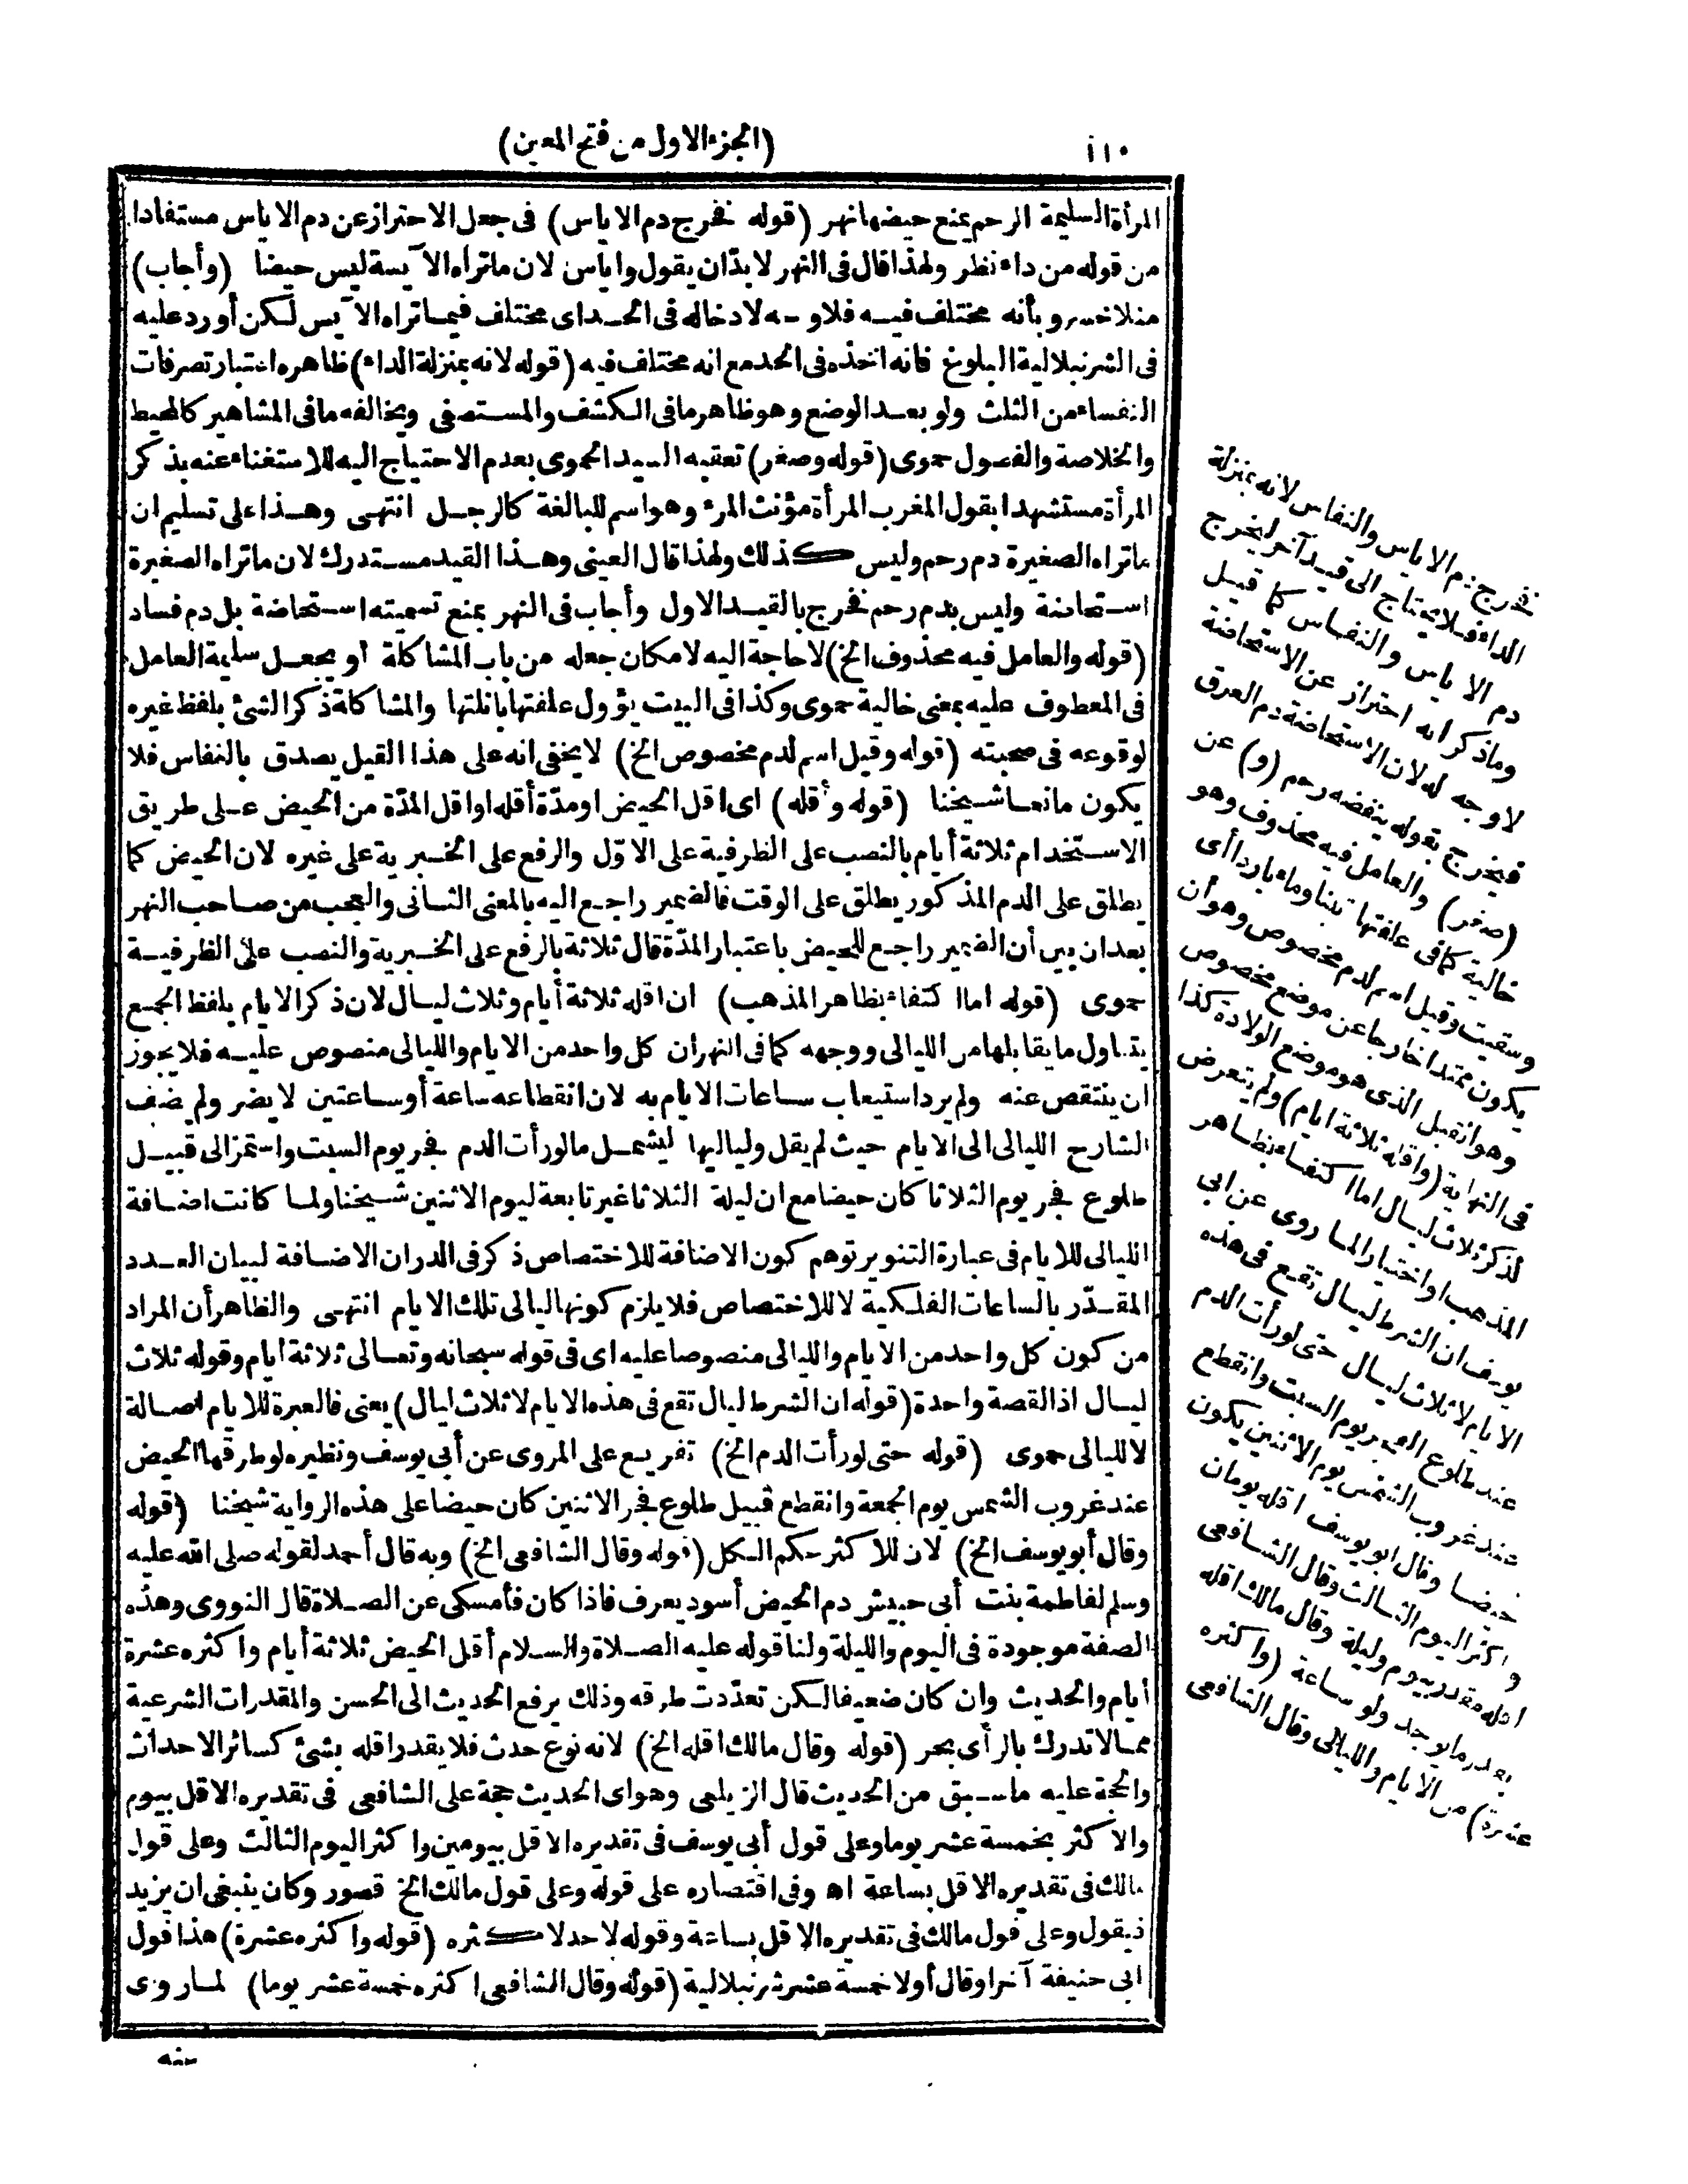 ١١٠
(الجزء الاول من فتح المعين)
المرأة السليمة الرحم يمنع حيضها نهر (قوله فخرج دم الاياس) فى جعل الاحتراز عن دم الاياس مستفادا
من قوله من داء نظر ولهذا قال فى النهر لا بدّ ان يقول واياس لان ما تراه الآيسة ليس حيضا (وأجاب)
منلا خسرو بأنه مختلف فيه فلا وجه لادخاله فى الحد اى مختلف فيما تراه الآيس لكن أورد عليه
فى الشرنبلالية البلوغ فانه اخذه فى الحد مع انه مختلف فيه (قوله لانه بمنزلة الداء) ظاهره اعتبار تصرفات
النفساء من الثلث ولو بعد الوضع وهو ظاهر ما فى الكشف والمستصفى ويخالفه ما فى المشاهير كالمحيط
والخلاصة والفصول حموى (قوله وصغر) تعقبه السيد الحموى بعدم الاحتياج اليه للاستغناء عنه بذكر
المرأة مستشهدا بقول المغرب المرأة مؤنث المرء وهو اسم للبالغة كالرجل انتهى وهذا على تسليم ان
ما تراه الصغيرة دم رحم وليس كذلك ولهذا قال العينى وهذا القيد مستدرك لان ما تراه الصغيرة
استحاضة وليس بدم رحم فخرج بالقيد الاول وأجاب فى النهر بمنع تسميته استحاضة بل دم فساد
(قوله والعامل فيه محذوف الخ) لا حاجة اليه لامكان جعله من باب المشاكلة أو يجعل سليمة العامل
فى المعطوف عليه بمعنى خالية حموى وكذا فى البيت يؤول علفتها بانلتها والمشاكلة ذكر الشئ بلفظ غيره
لوقوعه فى صحبته (قوله وقيل اسم لدم مخصوص الخ) لا يخفى انه على هذا القيل يصدق بالنفاس فلا
يكون مانعا شيخنا (قوله وأقله) اى اقل الحيض او مدّة أقله او اقل المدّة من الحيض على طريق
الاستخدام ثلاثة أيام بالنصب على الظرفية على الاوّل والرفع على الخبرية على غيره لان الحيض كما
يطلق على الدم المذكور يطلق على الوقت فالضمير راجع اليه بالمعنى الثانى والعجب من صاحب النهر
بعد ان بين أن الضمير راجع للحيض باعتبار المدّة قال ثلاثة بالرفع على الخبرية والنصب على الظرفية
حموى (قوله اما اكتفاء بظاهر المذهب) ان اقله ثلاثة أيام وثلاث ليال لان ذكر الايام بلفظ الجمع
يتناول ما يقابلها من الليالى ووجهه كما فى النهر ان كل واحد من الايام والليالى منصوص عليه فلا يجوز
ان ينتقص عنه ولم يرد استيعاب ساعات الايام به لان انقطاعه ساعة أو ساعتين لا يضر ولم يضف
الشارح الليالى الى الايام حيث لم يقل ولياليها ليشمل ما لو رأت الدم فجر يوم السبت واستمرّ الى قبيل
طلوع فجر يوم الثلاثا كان حيضا مع ان ليلة الثلاثا غير تابعة ليوم الاثنين شيخنا ولما كانت اضافة
الليالى للايام فى عبارة التنوير توهم كون الاضافة للاختصاص ذكر فى الدر ان الاضافة لبيان العدد
المقدّر بالساعات الفلكية لا للاختصاص فلا يلزم كونها ليالى تلك الايام انتهى والظاهر أن المراد
من كون كل واحد من الايام والليالى منصوصا عليه اى فى قوله سبحانه وتعالى ثلاثة أيام وقوله ثلاث
ليال اذ القصة واحدة (قوله ان الشرط ليال تقع فى هذه الايام لا ثلاث ليال) يعنى فالعبرة للايام اصالة
لا لليالى حموى (قوله حتى لو رأت الدم الخ) تفريع على المروى عن أبى يوسف ونظيره لو طرقها الحيض
عند غروب الشمس يوم الجمعة وانقطع قبيل طلوع فجر الاثنين كان حيضا على هذه الرواية شيخنا (قوله
وقال أبو يوسف الخ) لان للاكثر حكم الكل (قوله وقال الشافعى الخ) وبه قال أحمد لقوله صلى الله عليه
وسلم لفاطمة بنت أبى حبيش دم الحيض أسود يعرف فاذا كان فأمسكى عن الصلاة قال النووى وهذه
الصفة موجودة فى اليوم والليلة ولنا قوله عليه الصلاة والسلام أقل الحيض ثلاثة أيام واكثره عشرة
أيام والحديث وان كان ضعيفا لكن تعدّدت طرقه وذلك يرفع الحديث الى الحسن والمقدرات الشرعية
مما لا تدرك بالرأى بحر (قوله وقال مالك اقله الخ) لانه نوع حدث فلا يقدر اقله بشئ كسائر الاحداث
والحجة عليه ما سبق من الحديث قال الزيلعى وهو اى الحديث حجة على الشافعى فى تقديره الاقل بيوم
والاكثر بخمسة عشر يوما وعلى قول أبى يوسف فى تقديره الاقل بيومين واكثر اليوم الثالث وعلى قول
مالك فى تقديره الاقل بساعة اه وفى اقتصاره على قوله وعلى قول مالك الخ قصور وكان ينبغى ان يزيد
فيقول وعلى قول مالك فى تقديره الاقل بساعة وقوله لا حد لاكثره (قوله واكثره عشرة) هذا قول
ابى حنيفة آخرا وقال أولا خمسة عشر شرنبلالية (قوله وقال الشافعى اكثره خمسة عشر يوما) لما روى
عنه
فخرج دم الاياس والنفاس لانه بمنزلة
الداء فلا يحتاج الى قيد آخر ليخرج
دم الاياس والنفاس كما قيل
وما ذكر انه احتراز عن الاستحاضة
لا وجه له لان الاستحاضة دم العرق
فيخرج بقوله ينفضه رحم (و) عن
(صغر) والعامل فيه محذوف وهو
خالية كما فى علفتها تبنا وماء باردا أى
وسقيت وقيل اسم لدم مخصوص وهو أن
يكون ممتدا خارجا عن موضع مخصوص
وهو القبل الذى هو موضع الولادة كذا
فى النهاية (واقله ثلاثة ايام) ولم يتعرض
لذكر ثلاث ليال اما اكتفاء بظاهر
المذهب او اختيارا لما روى عن ابى
يوسف ان الشرط ليال تقع فى هذه
الايام لا ثلاث ليال حتى لو رأت الدم
عند طلوع الفجر يوم السبت وانقطع
عند غروب الشمس يوم الاثنين يكون
حيضا وقال ابو يوسف اقله يومان
واكثر اليوم الثالث وقال الشافعى
اقله مقدر بيوم وليلة وقال مالك اقله
بعدر ما يوجد ولو ساعة (واكثره
عشرة) من الايام والليالى وقال الشافعى